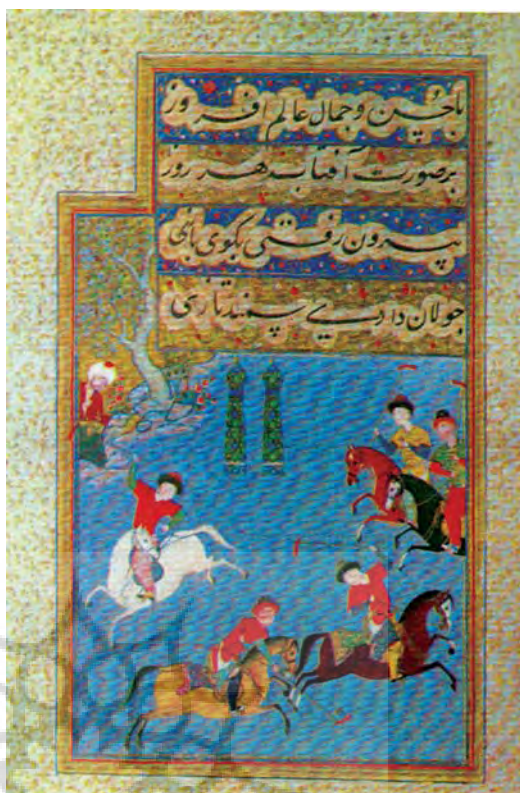 با حسن و جمال عالم افروز
بر صورت آفتاب هر روز
بیرون رفتی بگوی بازی
جولان دادی سمند تازی